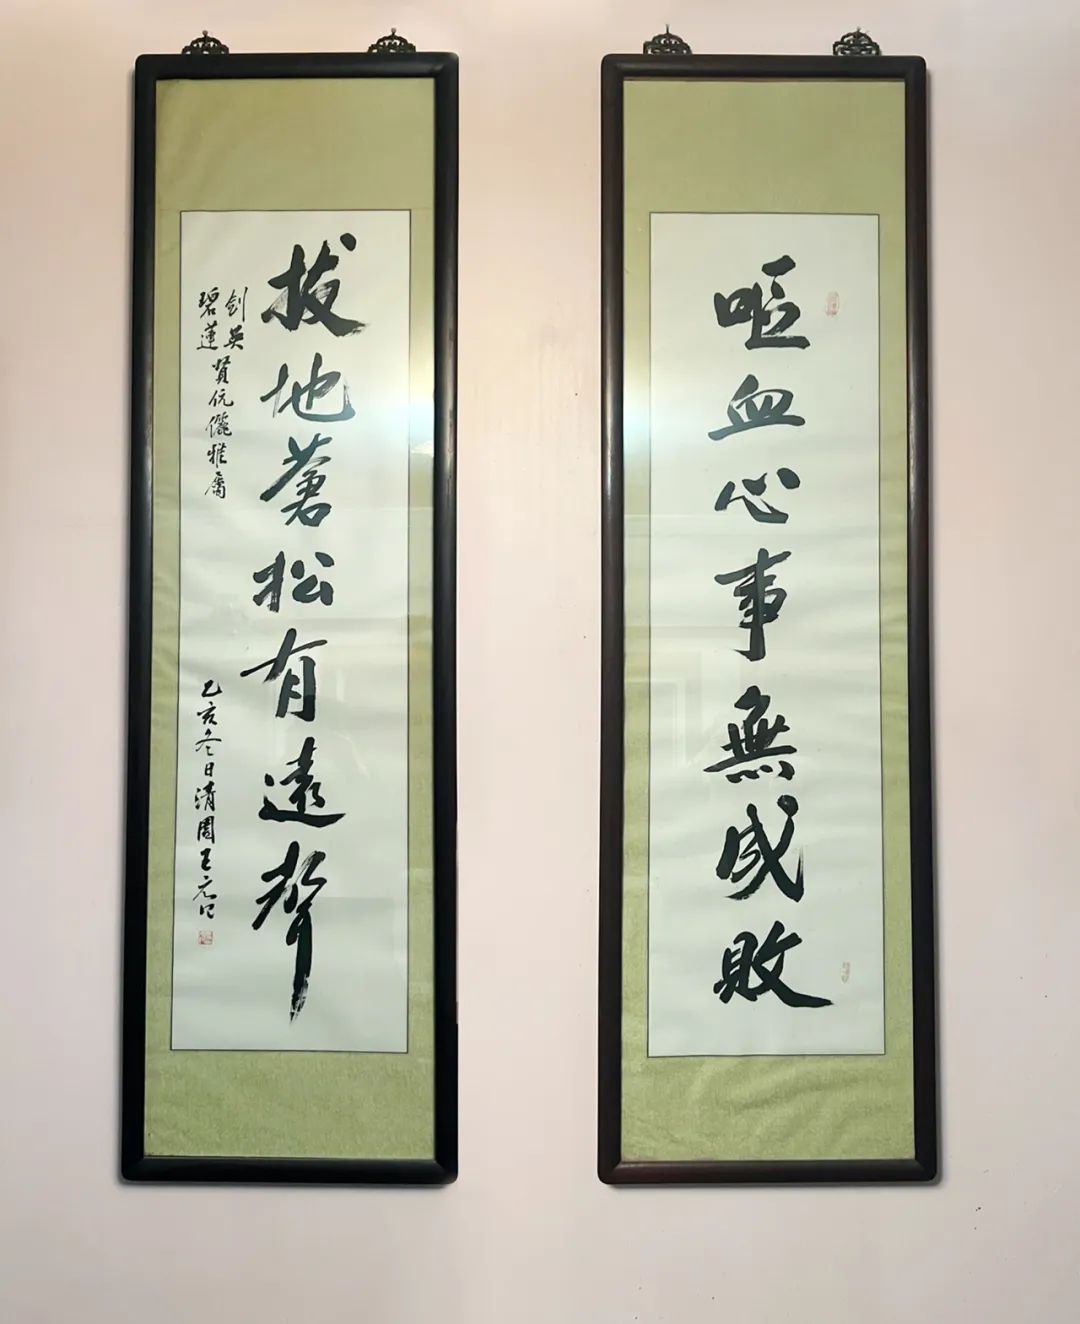 嘔血心事無成敗
拔地蒼松有遠聲
劍英
碧蓮
賢伉儷雅屬
乙亥冬日清園王元化